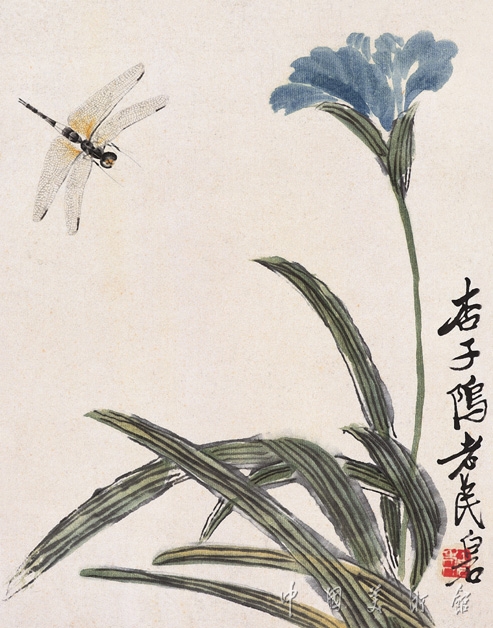 杏子隖老民白石
中国美术馆